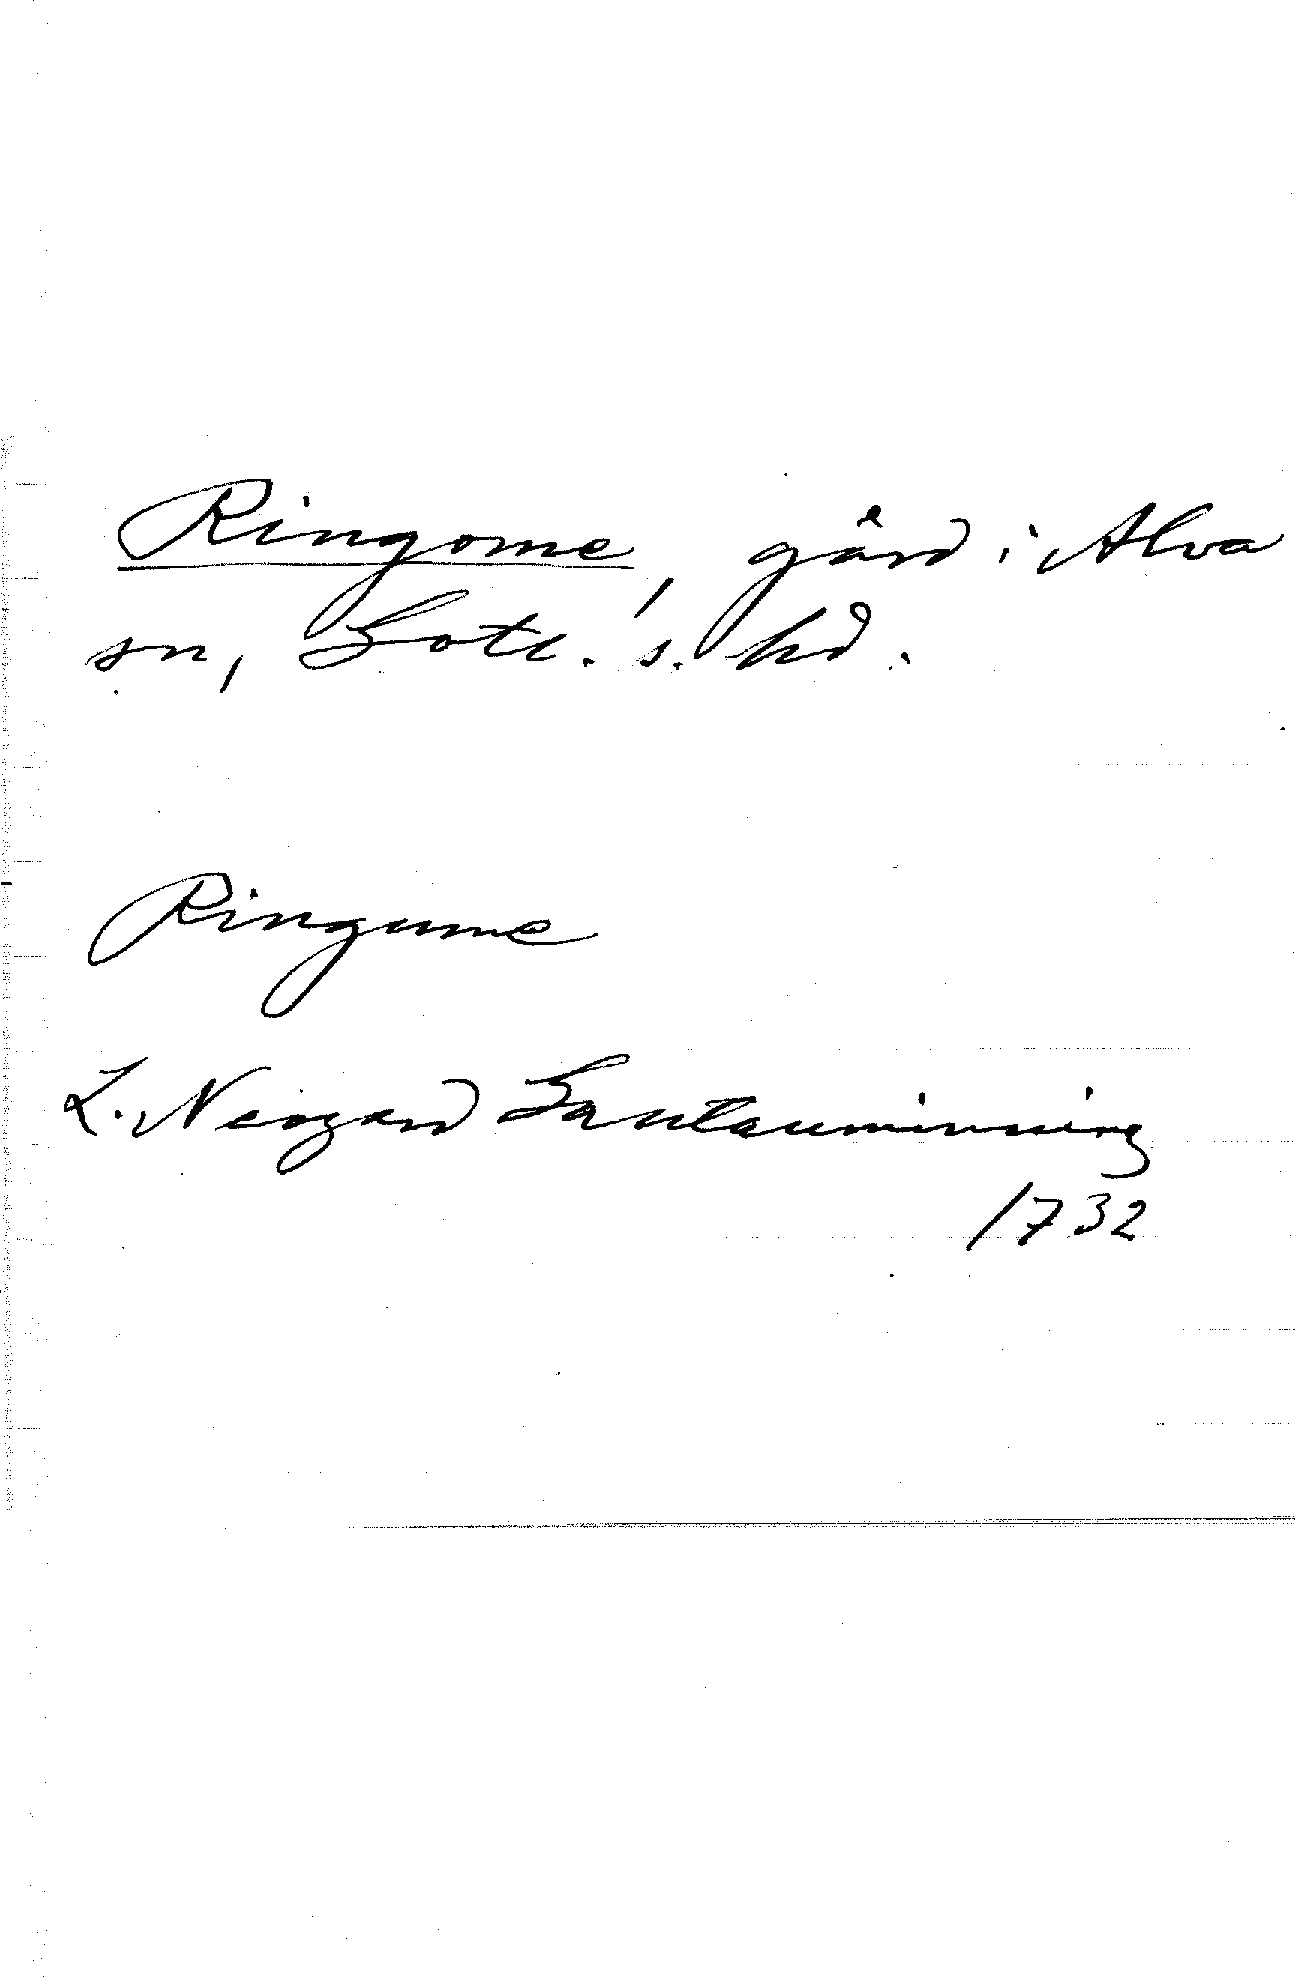 Ringome, gård i Alva
sn, Gotl. s. hd.
Ringume
L. Neogard Gautauminning
1732